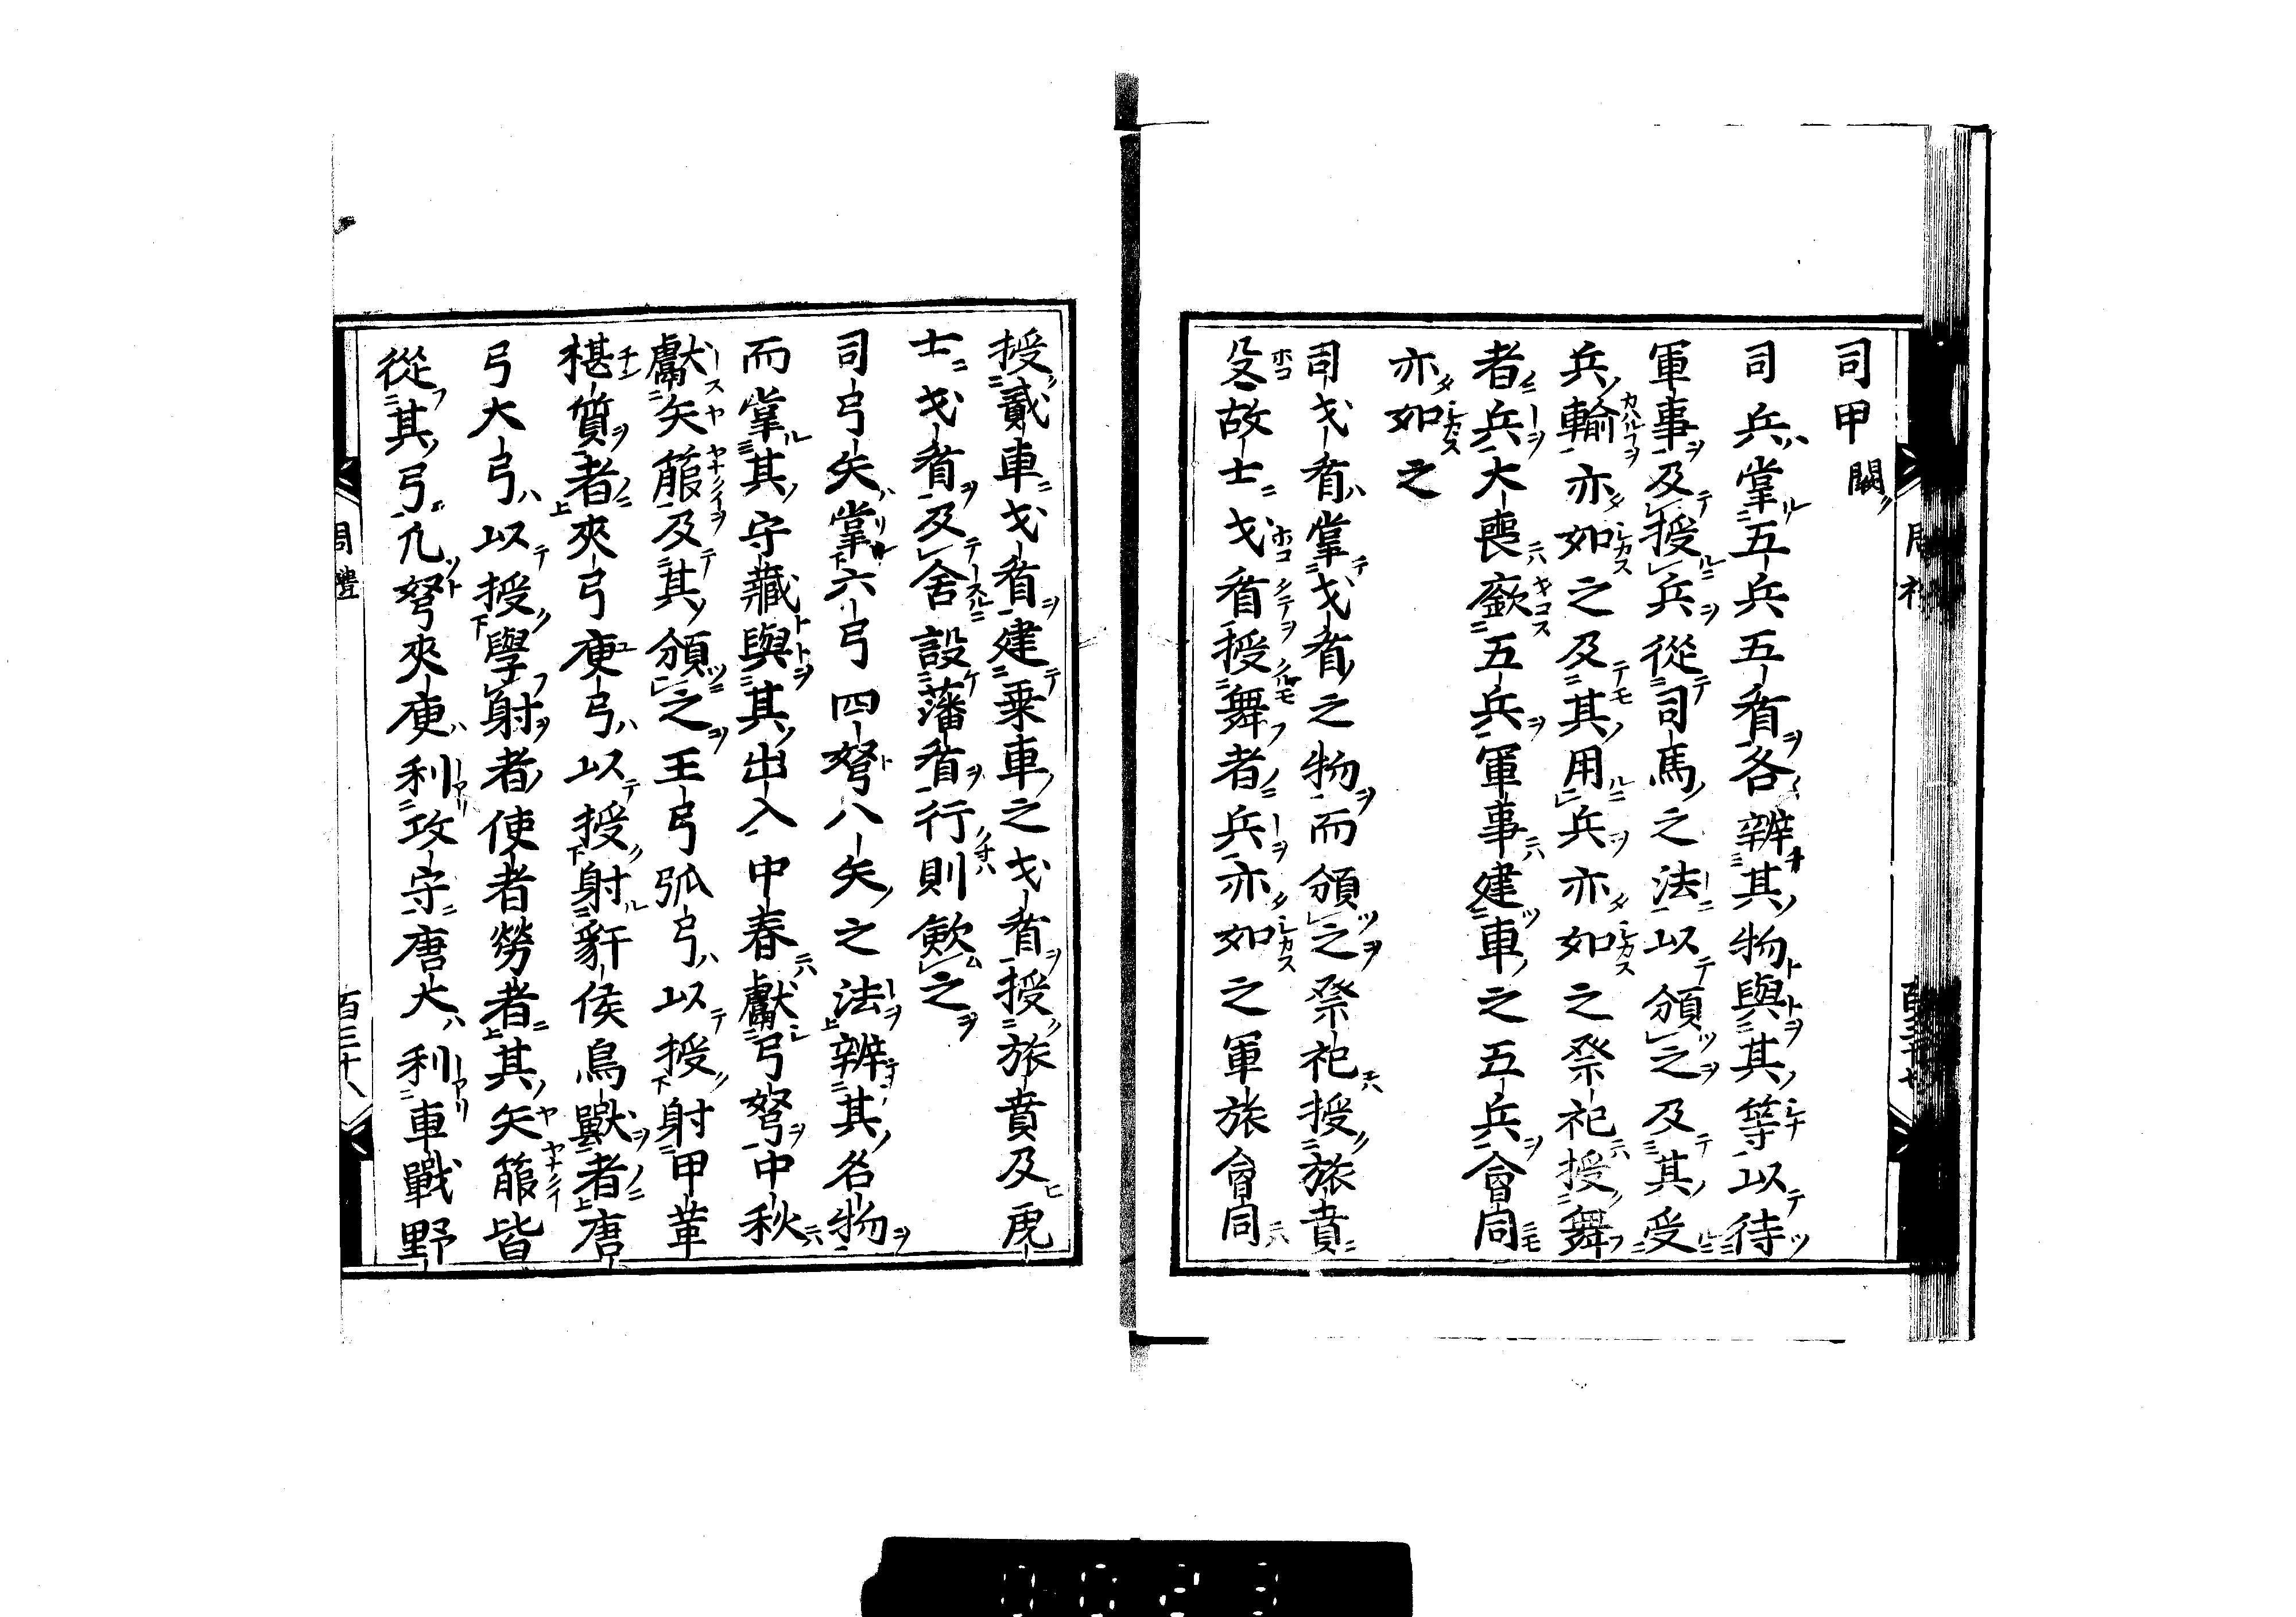 司甲闕
司兵掌五兵五盾各辨其物與其等以待
軍事及授兵從司馬之法以頒之及其受
兵輸亦如之及其用兵亦如之祭祀授舞
者兵大喪廞五兵軍事建車之五兵會同
亦如之
司戈盾掌戈盾之物而頒之祭祀授旅賁
殳故士戈盾授舞者兵亦如之軍旅會同
授貳車戈盾建乗車之戈盾授旅賁及虎
士戈盾及舍設藩盾行則斂之
司弓矢掌六弓四弩八矢之法辨其名物
而掌其守藏與其出入中春獻弓弩中秋
獻矢箙及其頒之王弓弧弓以授射甲革
椹質者夾弓庾弓以授射豻侯鳥獸者唐
弓大弓以授學射者使者勞者其矢箙皆
從其弓凡弩夾庾利攻守唐大利車戰野
周禮
百三十八